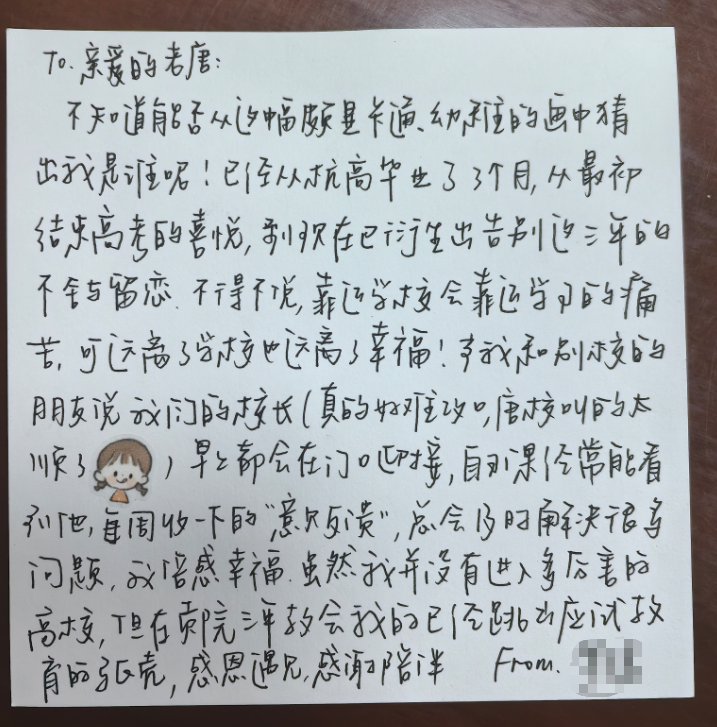 To. 亲爱的老唐:
不知道能否从这幅颇显卡通、幼稚的画中猜
出我是谁呢!已经从杭高毕业了3个月,从最初
结束高考的喜悦,到现在已衍生出告别这三年的
不舍与留恋.不得不说,靠近学校会靠近学习的痛
苦,可远离了学校也远离了幸福!我和别校的
朋友说我们的校长(真的好难改口,唐校叫的太
顺了),早上都会在门口迎接,自习课经常能看
到他,每周收一下的“意见反馈”,总会及时解决很多
问题,我倍感幸福.虽然我并没有进入多厉害的
高校,但在贡院三年教会我的已经跳出应试教
育的躯壳,感恩遇见,感谢陪伴 From.